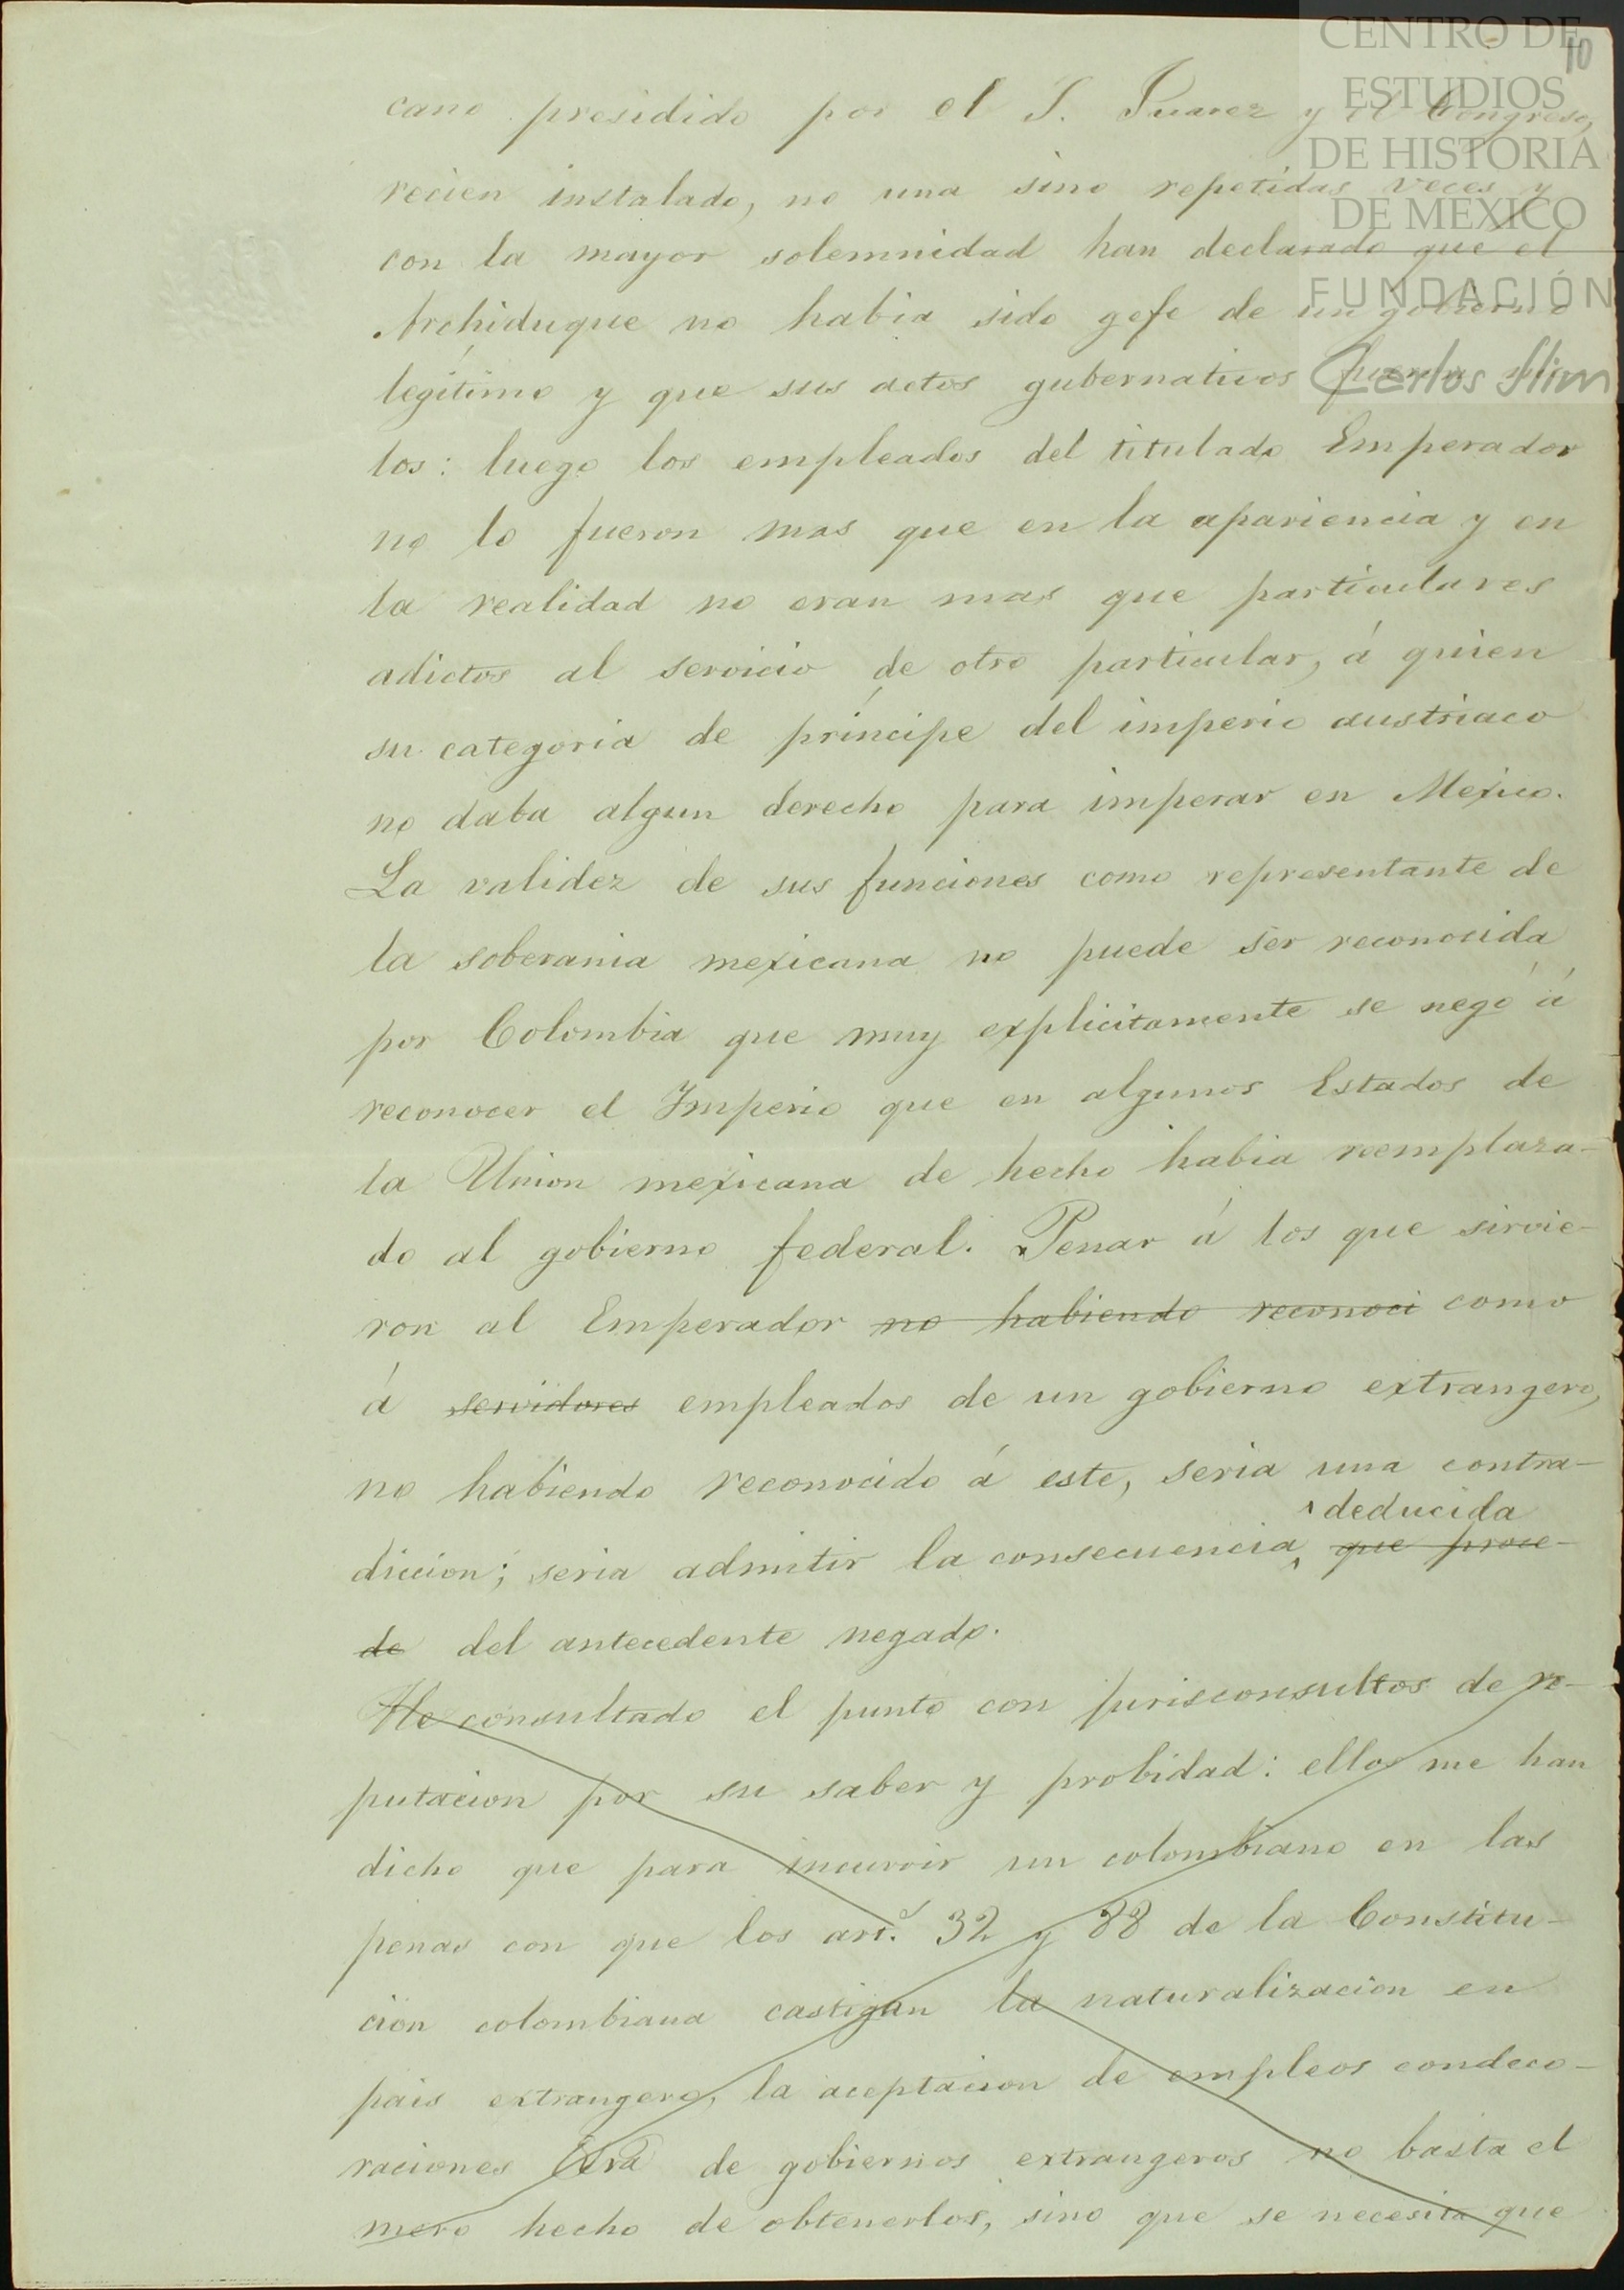 10
CENTRO DE
ESTUDIOS
DE HISTORIA
DE MEXICO
FUNDACIÓN
Carlos Slim
cano presidido por el S. Juarez y el Congreso,
recien instalado, no una sino repetidas veces y
con la mayor solemnidad han declarado que el
Archiduque no habia sido gefe de un gobierno
legítimo y que sus actos gubernativos fueron nu
los: luego los empleados del titulado Emperador
no lo fueron mas que en la apariencia y en
la realidad no eran mas que particulares
adictos al servicio de otro particular, á quien
su categoria de príncipe del imperio austriaco
no daba algun derecho para imperar en Mexico.
La validez de sus funciones como representante de
la soberania mexicana no puede ser reconocida
por Colombia que muy explicitamente se negó á
reconocer el Imperio que en algunos Estados de
la Union mexicana de hecho habia reemplaza-
do al gobierno federal. Penar á los que sirvie-
ron al Emperador no habiendo reconoci como
á servidores empleados de un gobierno extrangero,
no habiendo reconocido á este, seria una contra-
diccion; seria admitir la consecuencia deducida que proce-
de del antecedente negado.
He consultado el punto con jurisconsultos de re-
putacion por su saber y probidad: ellos me han
dicho que para incurrir un colombiano en las
penas con que los art.s 32 y 88 de la Constitu-
cion colombiana castigan la naturalizacion en
pais extrangero, la aceptacion de empleos condeco-
raciones &ra de gobiernos extrangeros no basta el
mero hecho de obtenerlos, sino que se necesita que